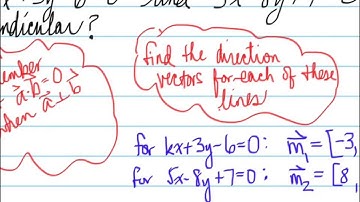 ndicular?
member
a·b=0
when a⊥b
find the direction
vectors for each of these
lines
for kx+3y-6=0: m₁ = [-3,
for 5x-8y+7=0: m₂ = [8,